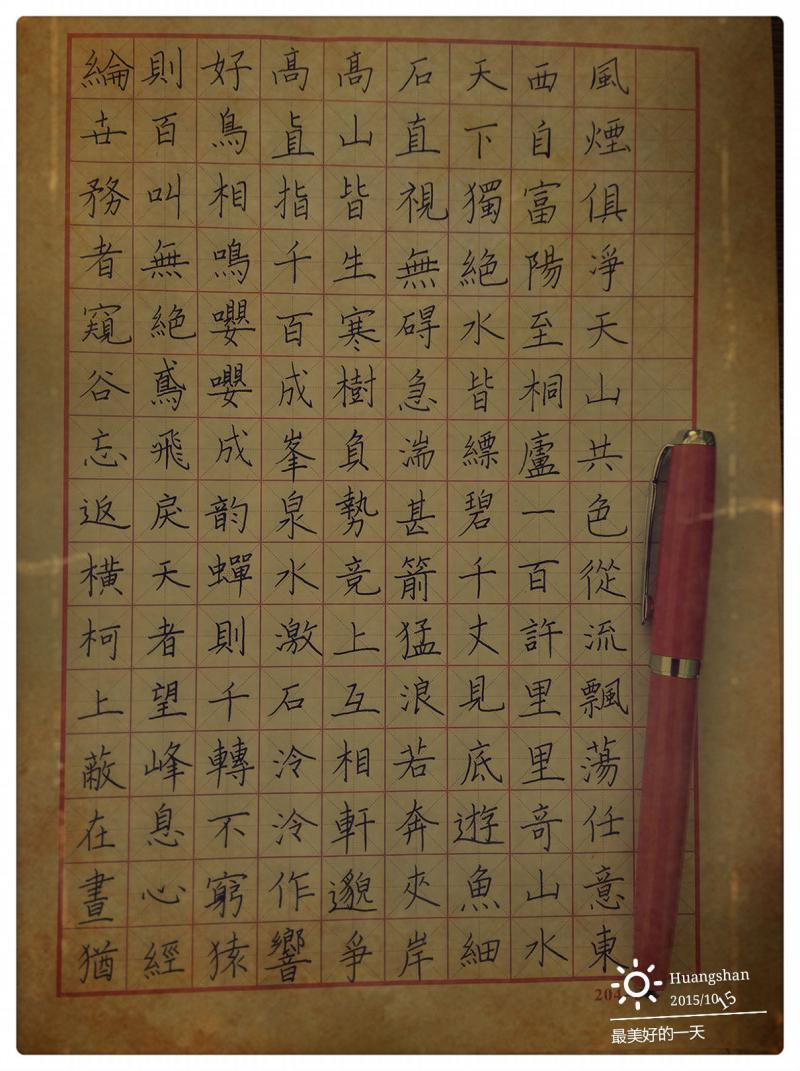 風煙俱凈天山共色從流飄蕩任意東
西自富陽至桐廬一百許里里奇山水
天下獨絶水皆縹碧千丈見底遊魚細
石直視無碍急湍甚箭猛浪若奔夾岸
高山皆生寒樹負勢竞上互相軒邈爭
高直指千百成峯泉水激石泠泠作響
好鳥相鳴嚶嚶成韵蟬則千轉不窮猿
則百叫無絶鳶飛戾天者望峰息心經
綸世務者窺谷忘返橫柯上蔽在晝猶
204
Huangshan
2015/10/15
最美好的一天